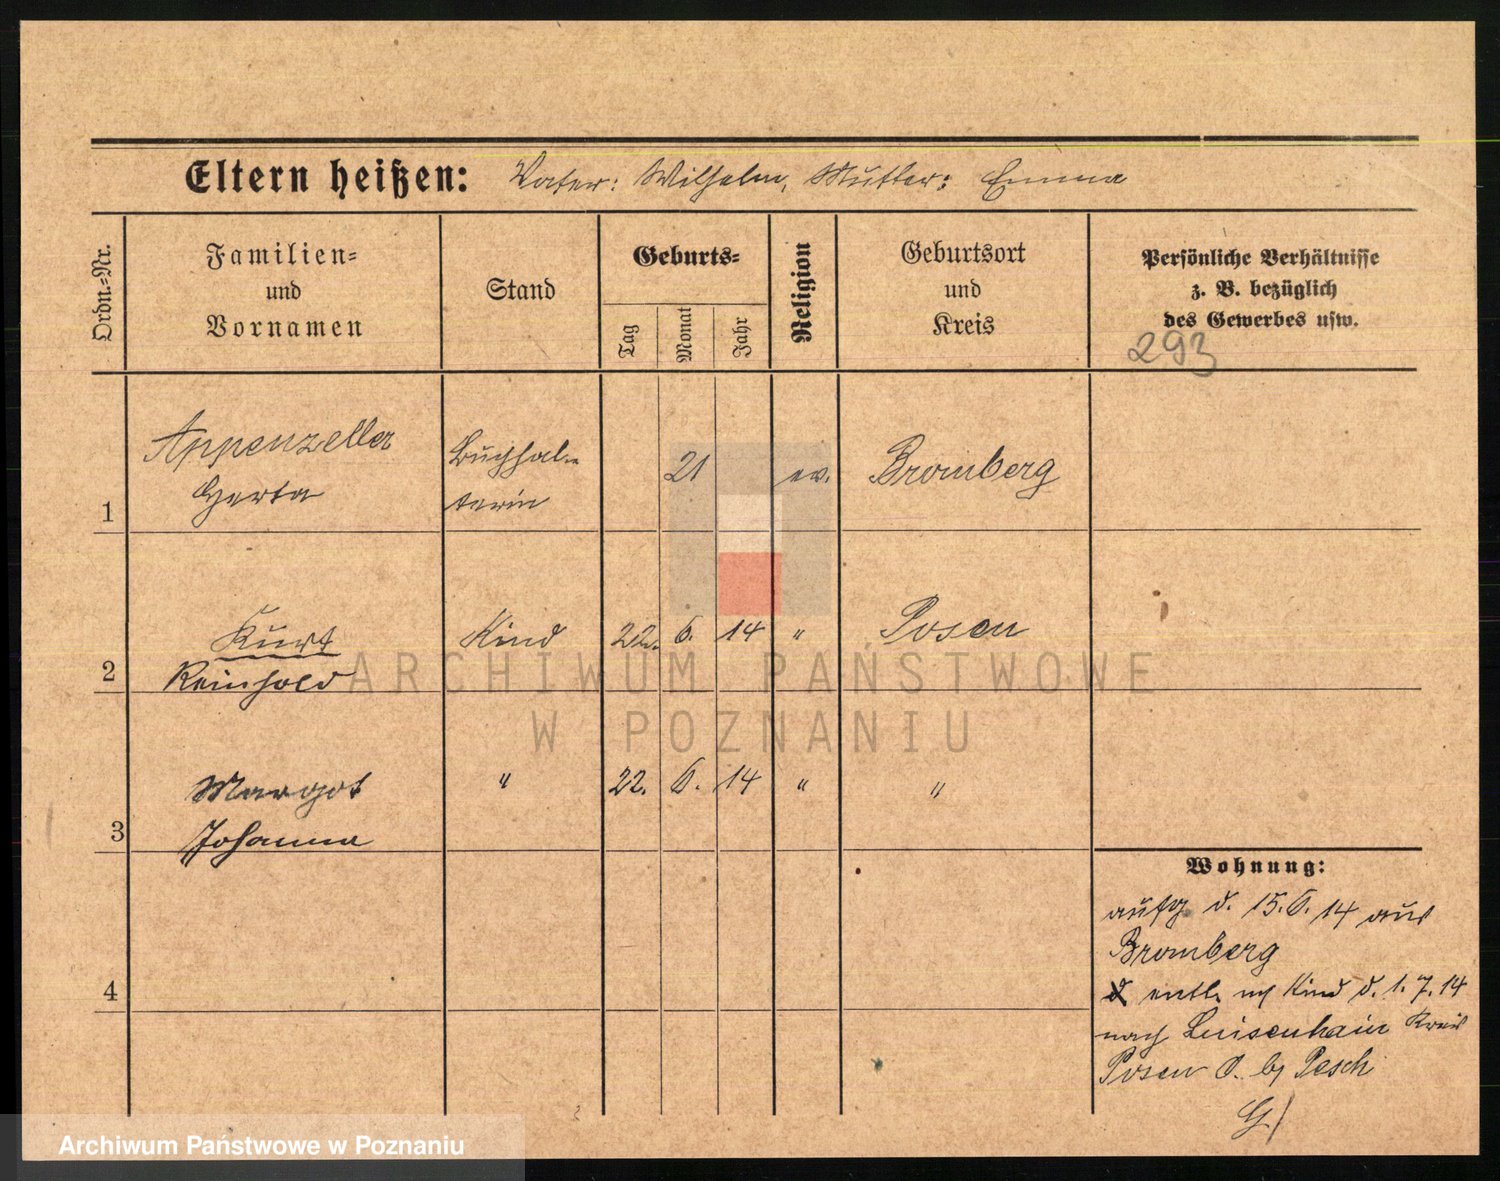 Eltern heißen: Vater: Wilhelm, Mutter: Emma
Ordn.-Nr.
Familien-
und
Vornamen
Stand
Geburts-
Tag
Monat
Jahr
Religion
Geburtsort
und
Kreis
Persönliche Verhältnisse
z. B. bezüglich
des Gewerbes usw.
293
1
Appenzeller
Gerta
Buchhal-
terin
21
ev.
Bromberg
2
Kurt
Reinhold
Kind
22. 6. 14
"
Posen
ARCHIWUM PAŃSTWOWE
W POZNANIU
3
Margot
Johanna
"
22. 6. 14
"
"
4
Wohnung:
aufg d. 15.6.14 aus
Bromberg
entl. Kind d. 1.7.14
nach Luisenhain Kreis
Posen O. Pesch
Archiwum Państwowe w Poznaniu